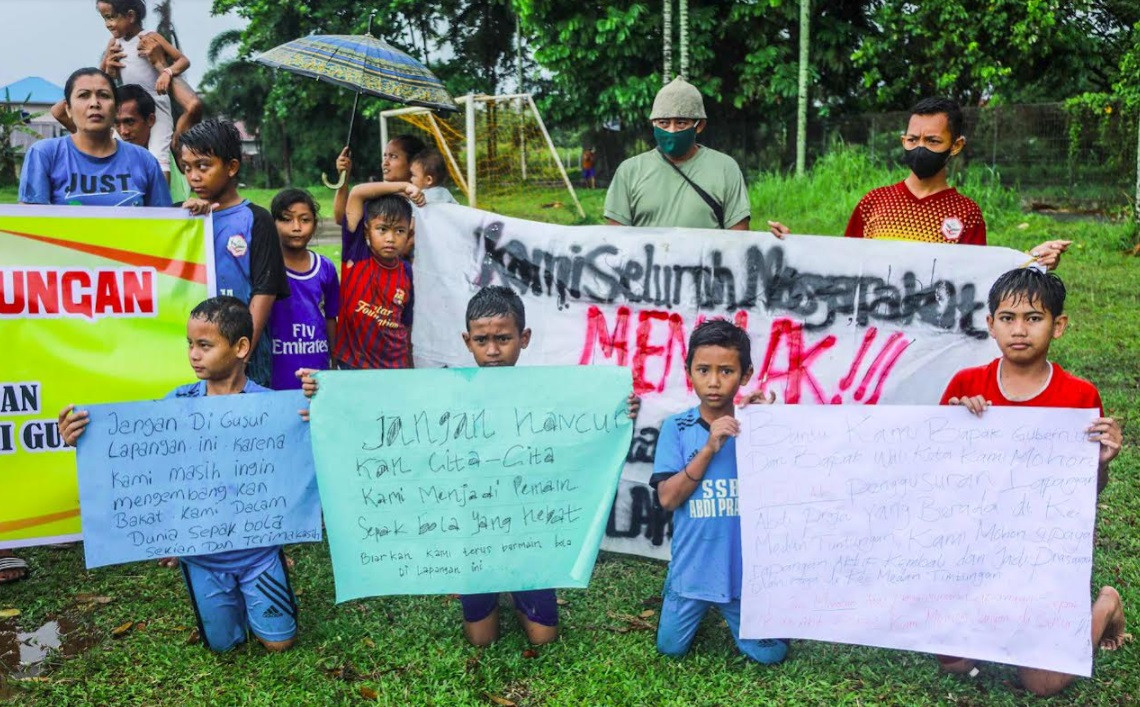 JUST
UNGAN
AN
I GU
Kami Seluruh Masyarakat
MENOLAK!!!
Fly
Emirates
Jangan Di Gusur
Lapangan ini karena
kami masih ingin
mengembang kan
Bakat kami Dalam
Dunia sepak bola
Sekian Dan Terimakasih
Jangan Hancur
kan Cita-Cita
Kami Menjadi Pemain
Sepak bola yang Hebat
Biarkan kami terus bermain bola
Di Lapangan ini
SSB
ABDI PRA
Bantu Kami Bapak Gubernur
Dan Bapak Wali Kota Kami Mohon
Pengusuran Lapangan
Abdi Praja Yang Berada di Kel
Medan Tuntungan, Kami Mohon supaya
Lapangan Kembali dan Jadi
di Kec Medan Tuntungan